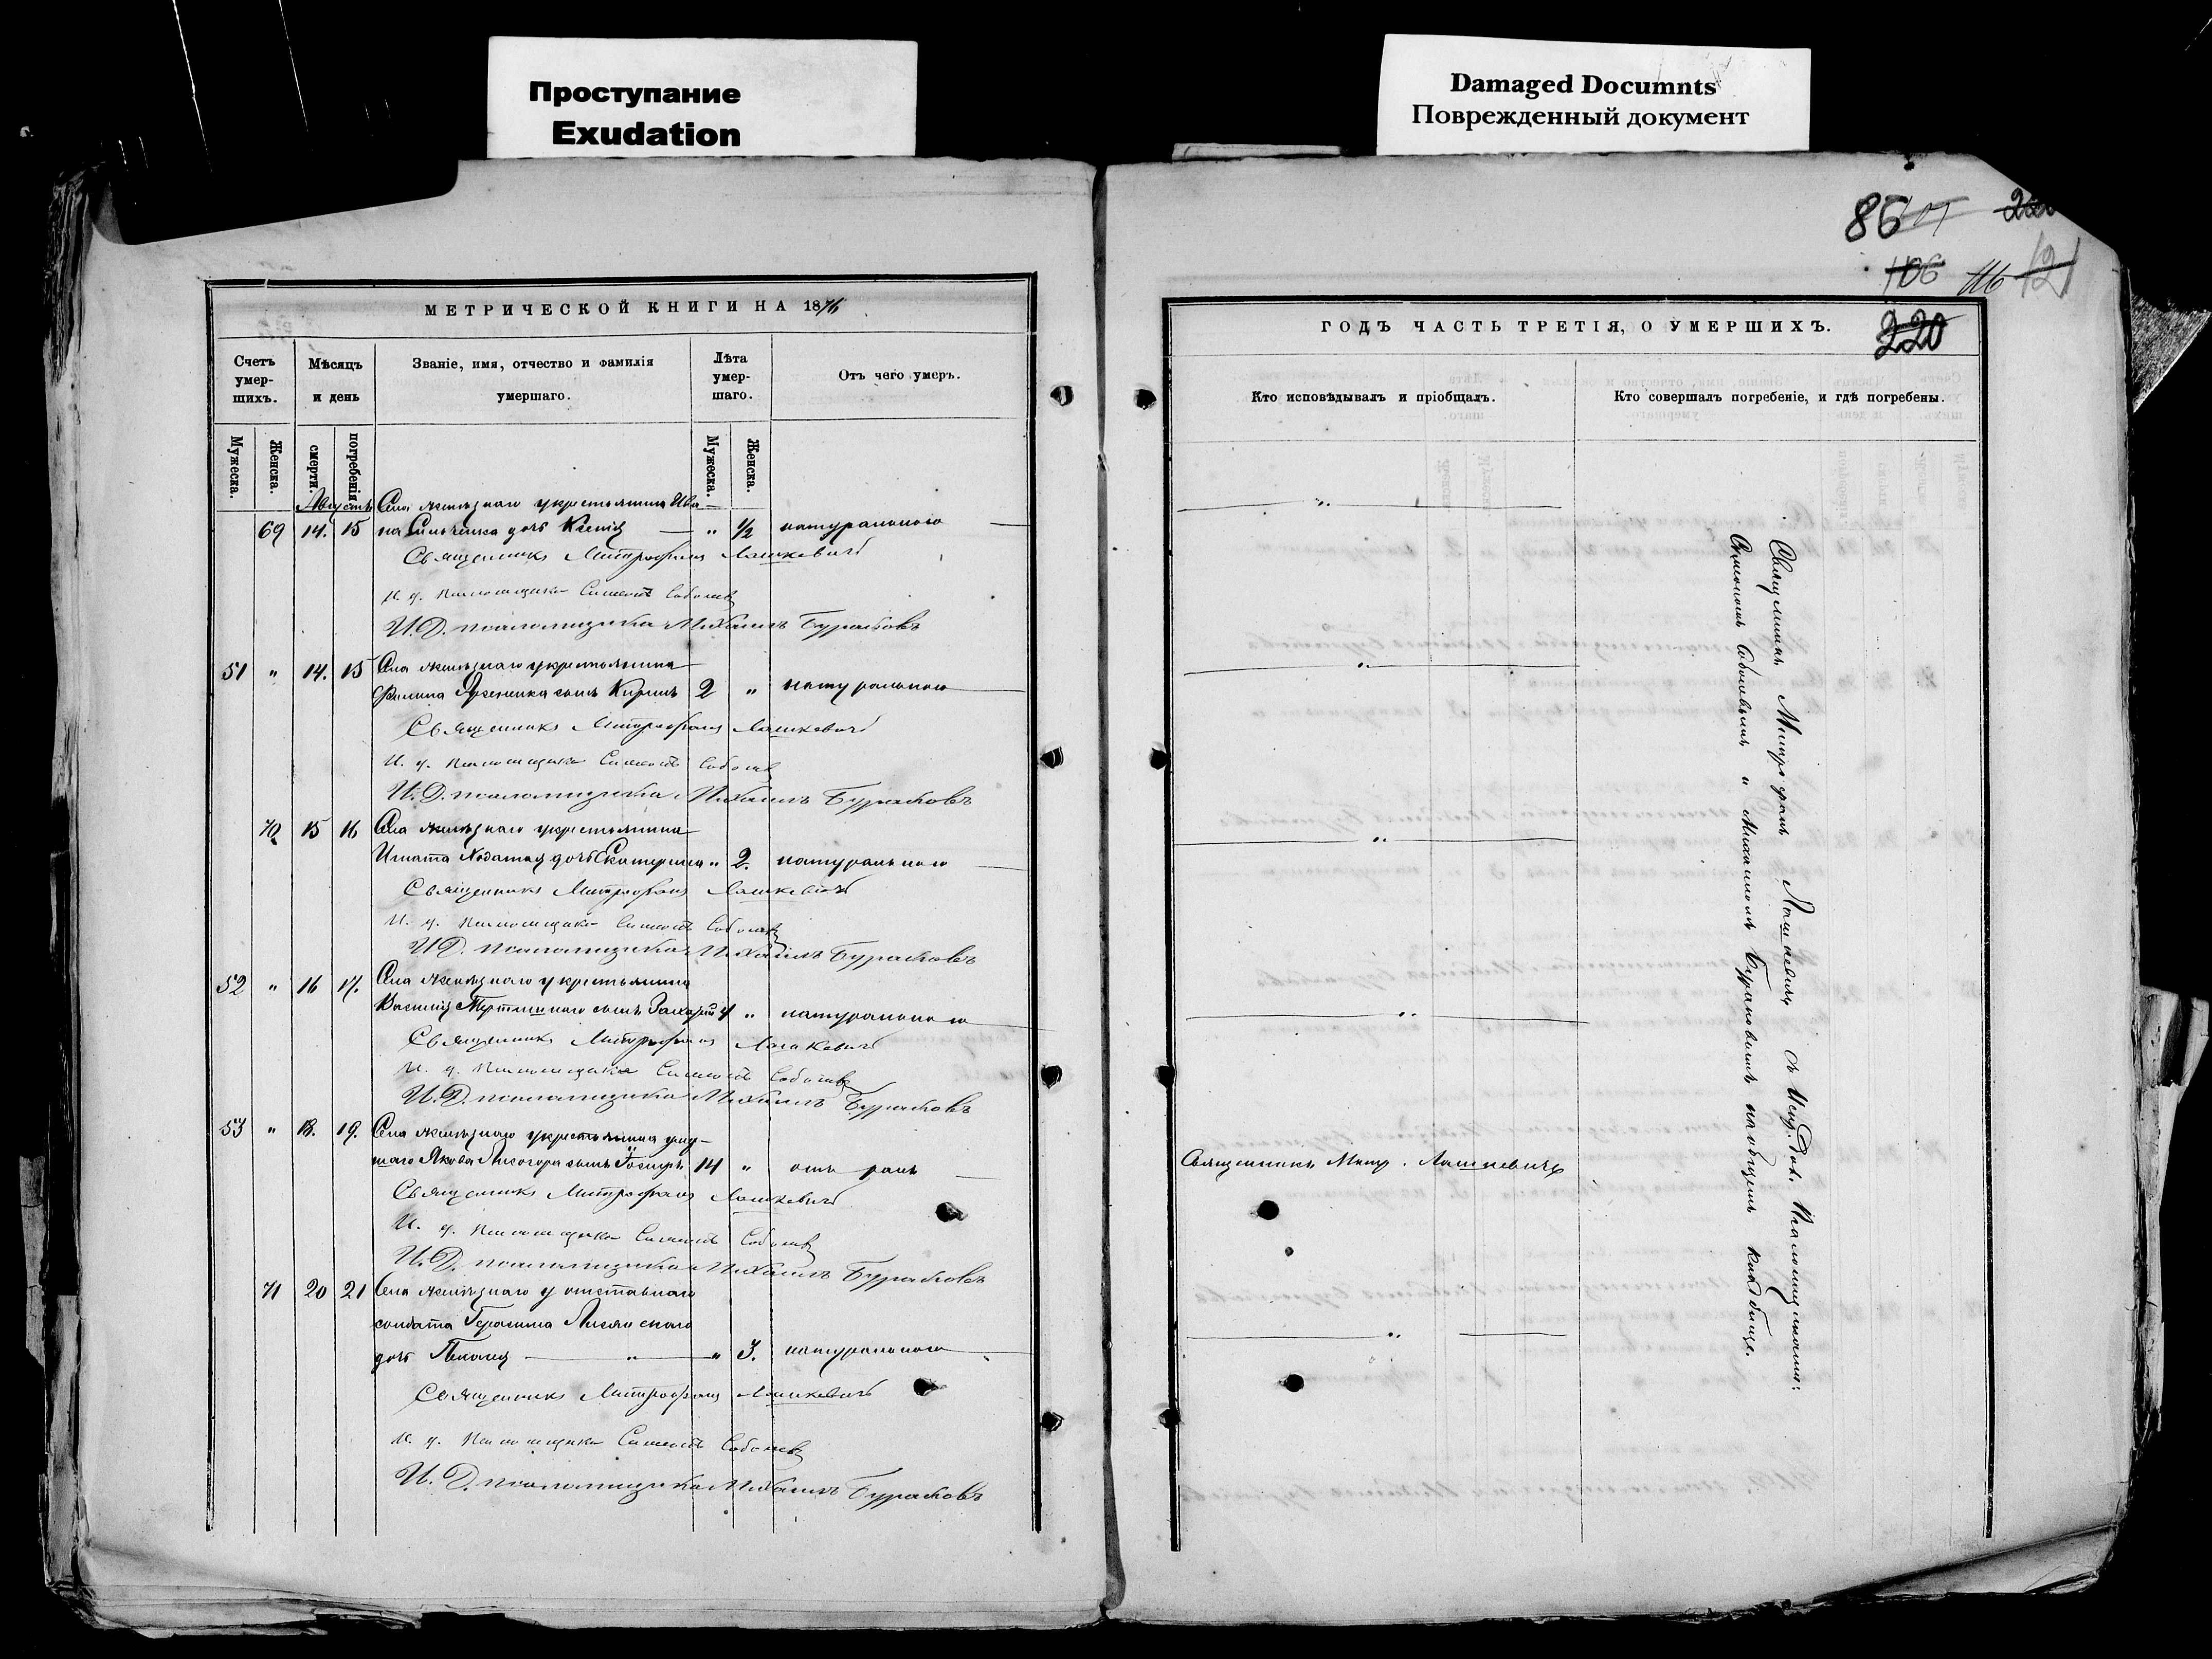 Проступание
Exudation
Damaged Documnts
Поврежденный документ
86
106 116 121
220
МЕТРИЧЕСКОЙ КНИГИ НА 1876
Счетъ умер-шихъ.
Мѣсяцъ и день
Званіе, имя, отчество и фамилія умершаго.
Лѣта умер-шаго.
Отъ чего умеръ.
Мужеска.
Женска.
смерти.
погребенія.
Мужеска.
Женска.
Августъ Села желѣзнаго у крестьянина Ива-
69 14. 15 на дочь Ксенія " 1/2 натурального
Священникъ Митрофанъ Лашкевичъ
И. д. псаломщика Симеонъ Соболевъ
И. Д. псаломщика Михаилъ Бураковъ
51 " 14. 15 Села желѣзнаго у крестьянина
Филипа сынъ Кирилъ 2 " натурального
Священникъ Митрофанъ Лашкевичъ
И. д. псаломщика Симеонъ Соболевъ
И. Д. псаломщика Михаилъ Бураковъ
70 15 16 Села желѣзнаго у крестьянина
Игната дочь Екатерина " 2. натурального
Священникъ Митрофанъ Лашкевичъ
И. д. псаломщика Симеонъ Соболевъ
И. Д. псаломщика Михаилъ Бураковъ
52 " 16 17. Села желѣзнаго у крестьянина
Василія сынъ Захарій 4 " натурального
Священникъ Митрофанъ Лашкевичъ
И. д. псаломщика Симеонъ Соболевъ
И. Д. псаломщика Михаилъ Бураковъ
53 " 18. 19. Села желѣзнаго у крестьянина
Якова Лисогора сынъ 14 " отъ ранъ
Священникъ Митрофанъ Лашкевичъ
И. д. псаломщика Симеонъ Соболевъ
И. Д. псаломщика Михаилъ Бураковъ
71 20 21 Села желѣзнаго у отставнаго
солдата Герасима
дочь " " 3. натурального
Священникъ Митрофанъ Лашкевичъ
И. д. псаломщика Симеонъ Соболевъ
И. Д. псаломщика Михаилъ Бураковъ
ГОДЪ ЧАСТЬ ТРЕТІЯ, О УМЕРШИХЪ.
Кто исповѣдывалъ и пріобщалъ.
Кто совершалъ погребеніе, и гдѣ погребены.
Священникъ Митр. Лашкевичъ
Священникъ Митрофанъ Лашкевичъ съ Исп. Дол. Псаломщиками:
Симеономъ Соболевымъ и Михаиломъ Бураковымъ на общемъ кладбище.